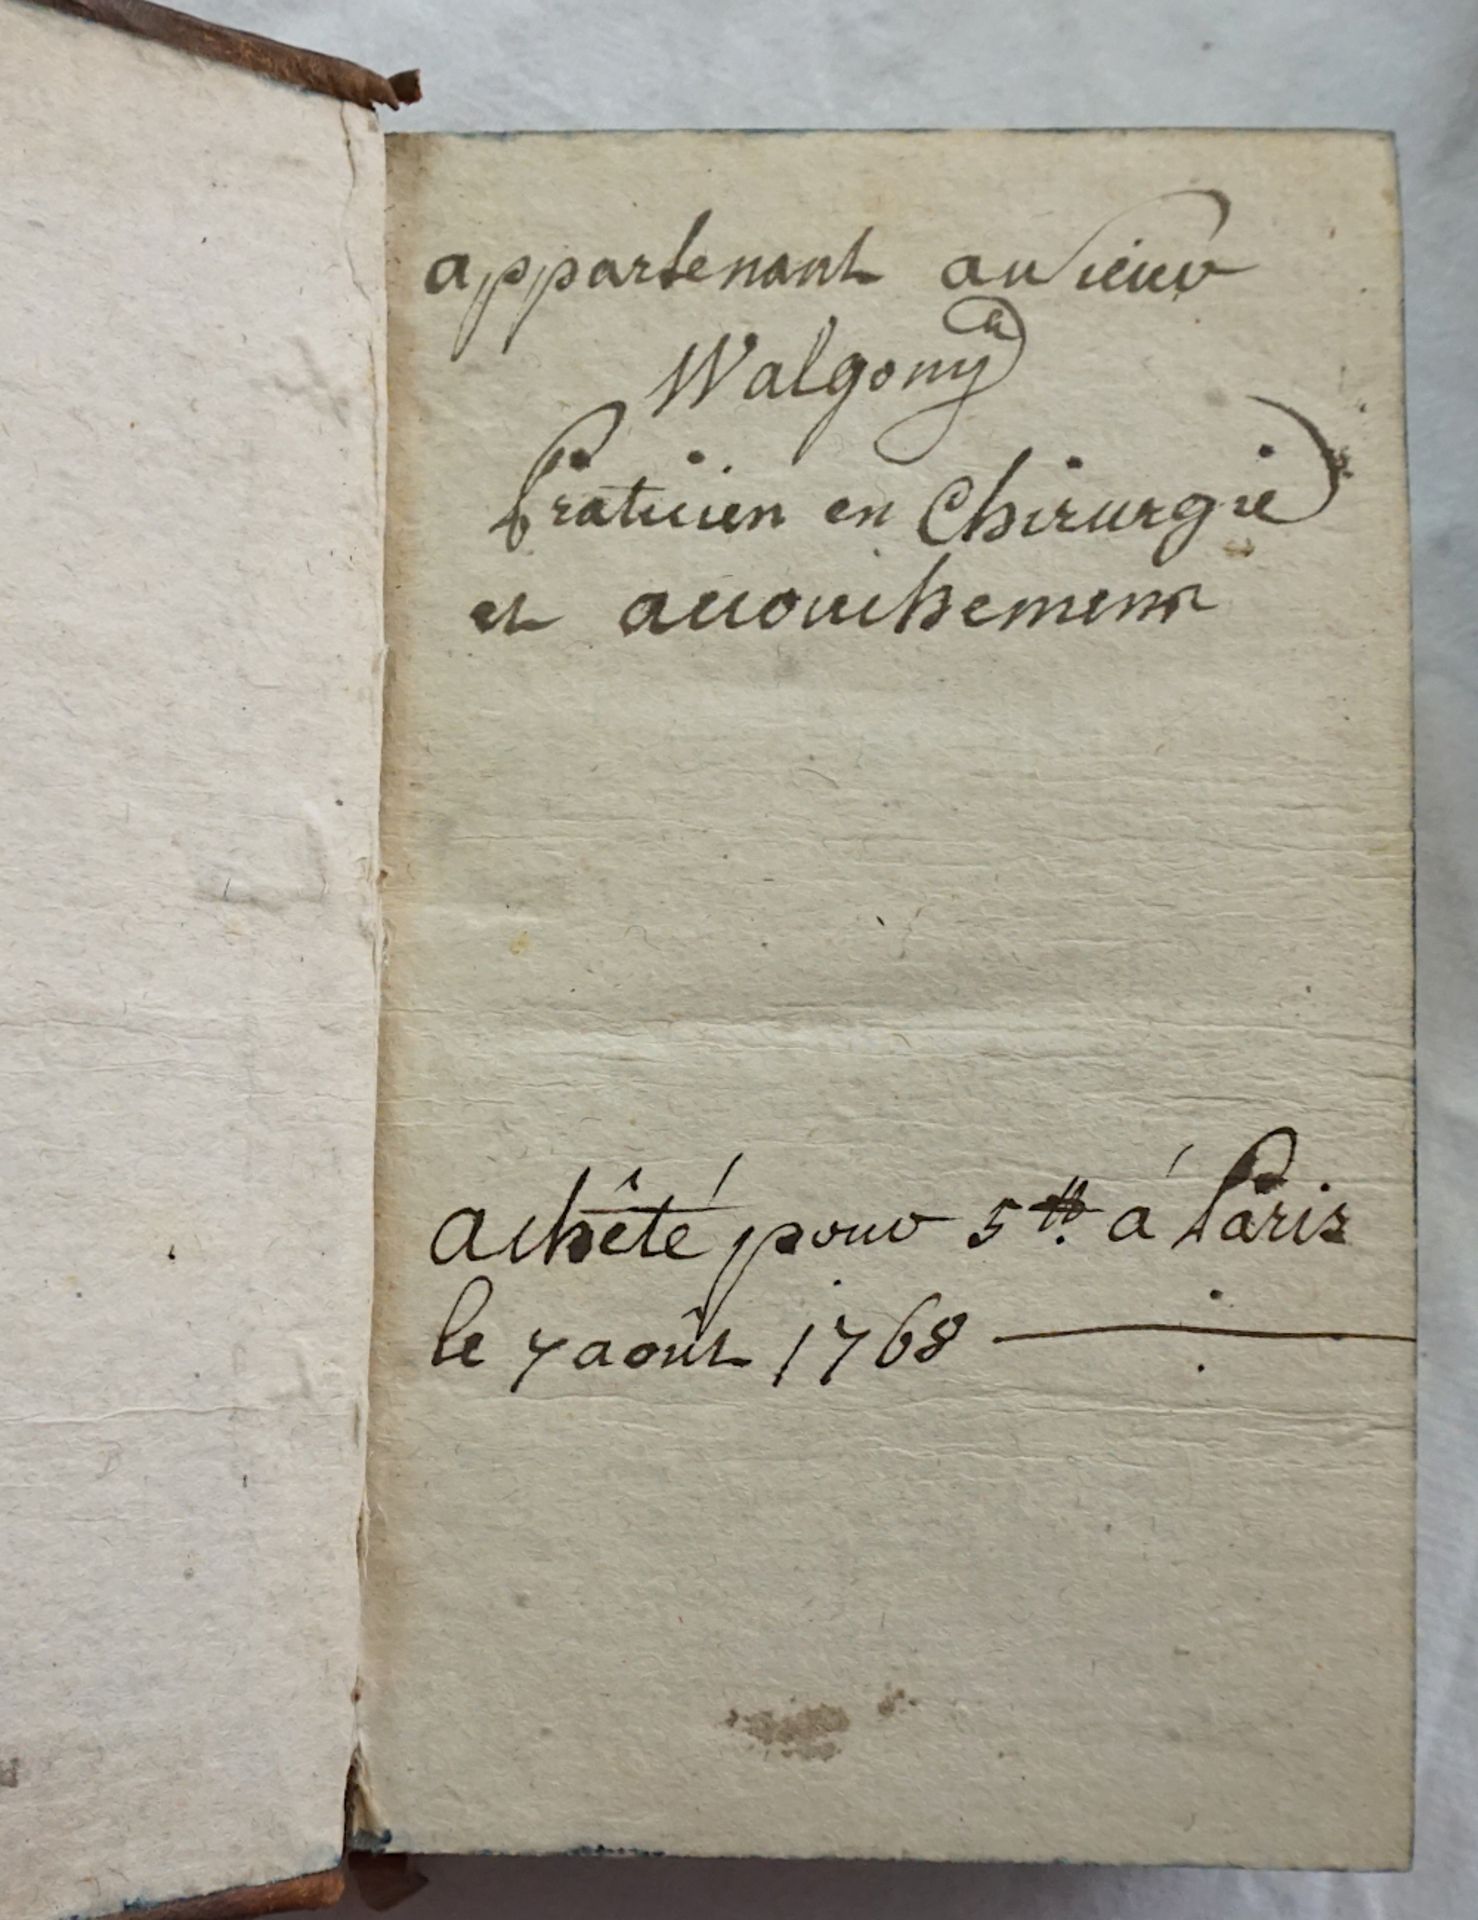 appartenant au sieur
Walgony
Praticien en Chirurgie
et accouchement
achêté pour 5 ₶ à Paris
le 7 août 1768